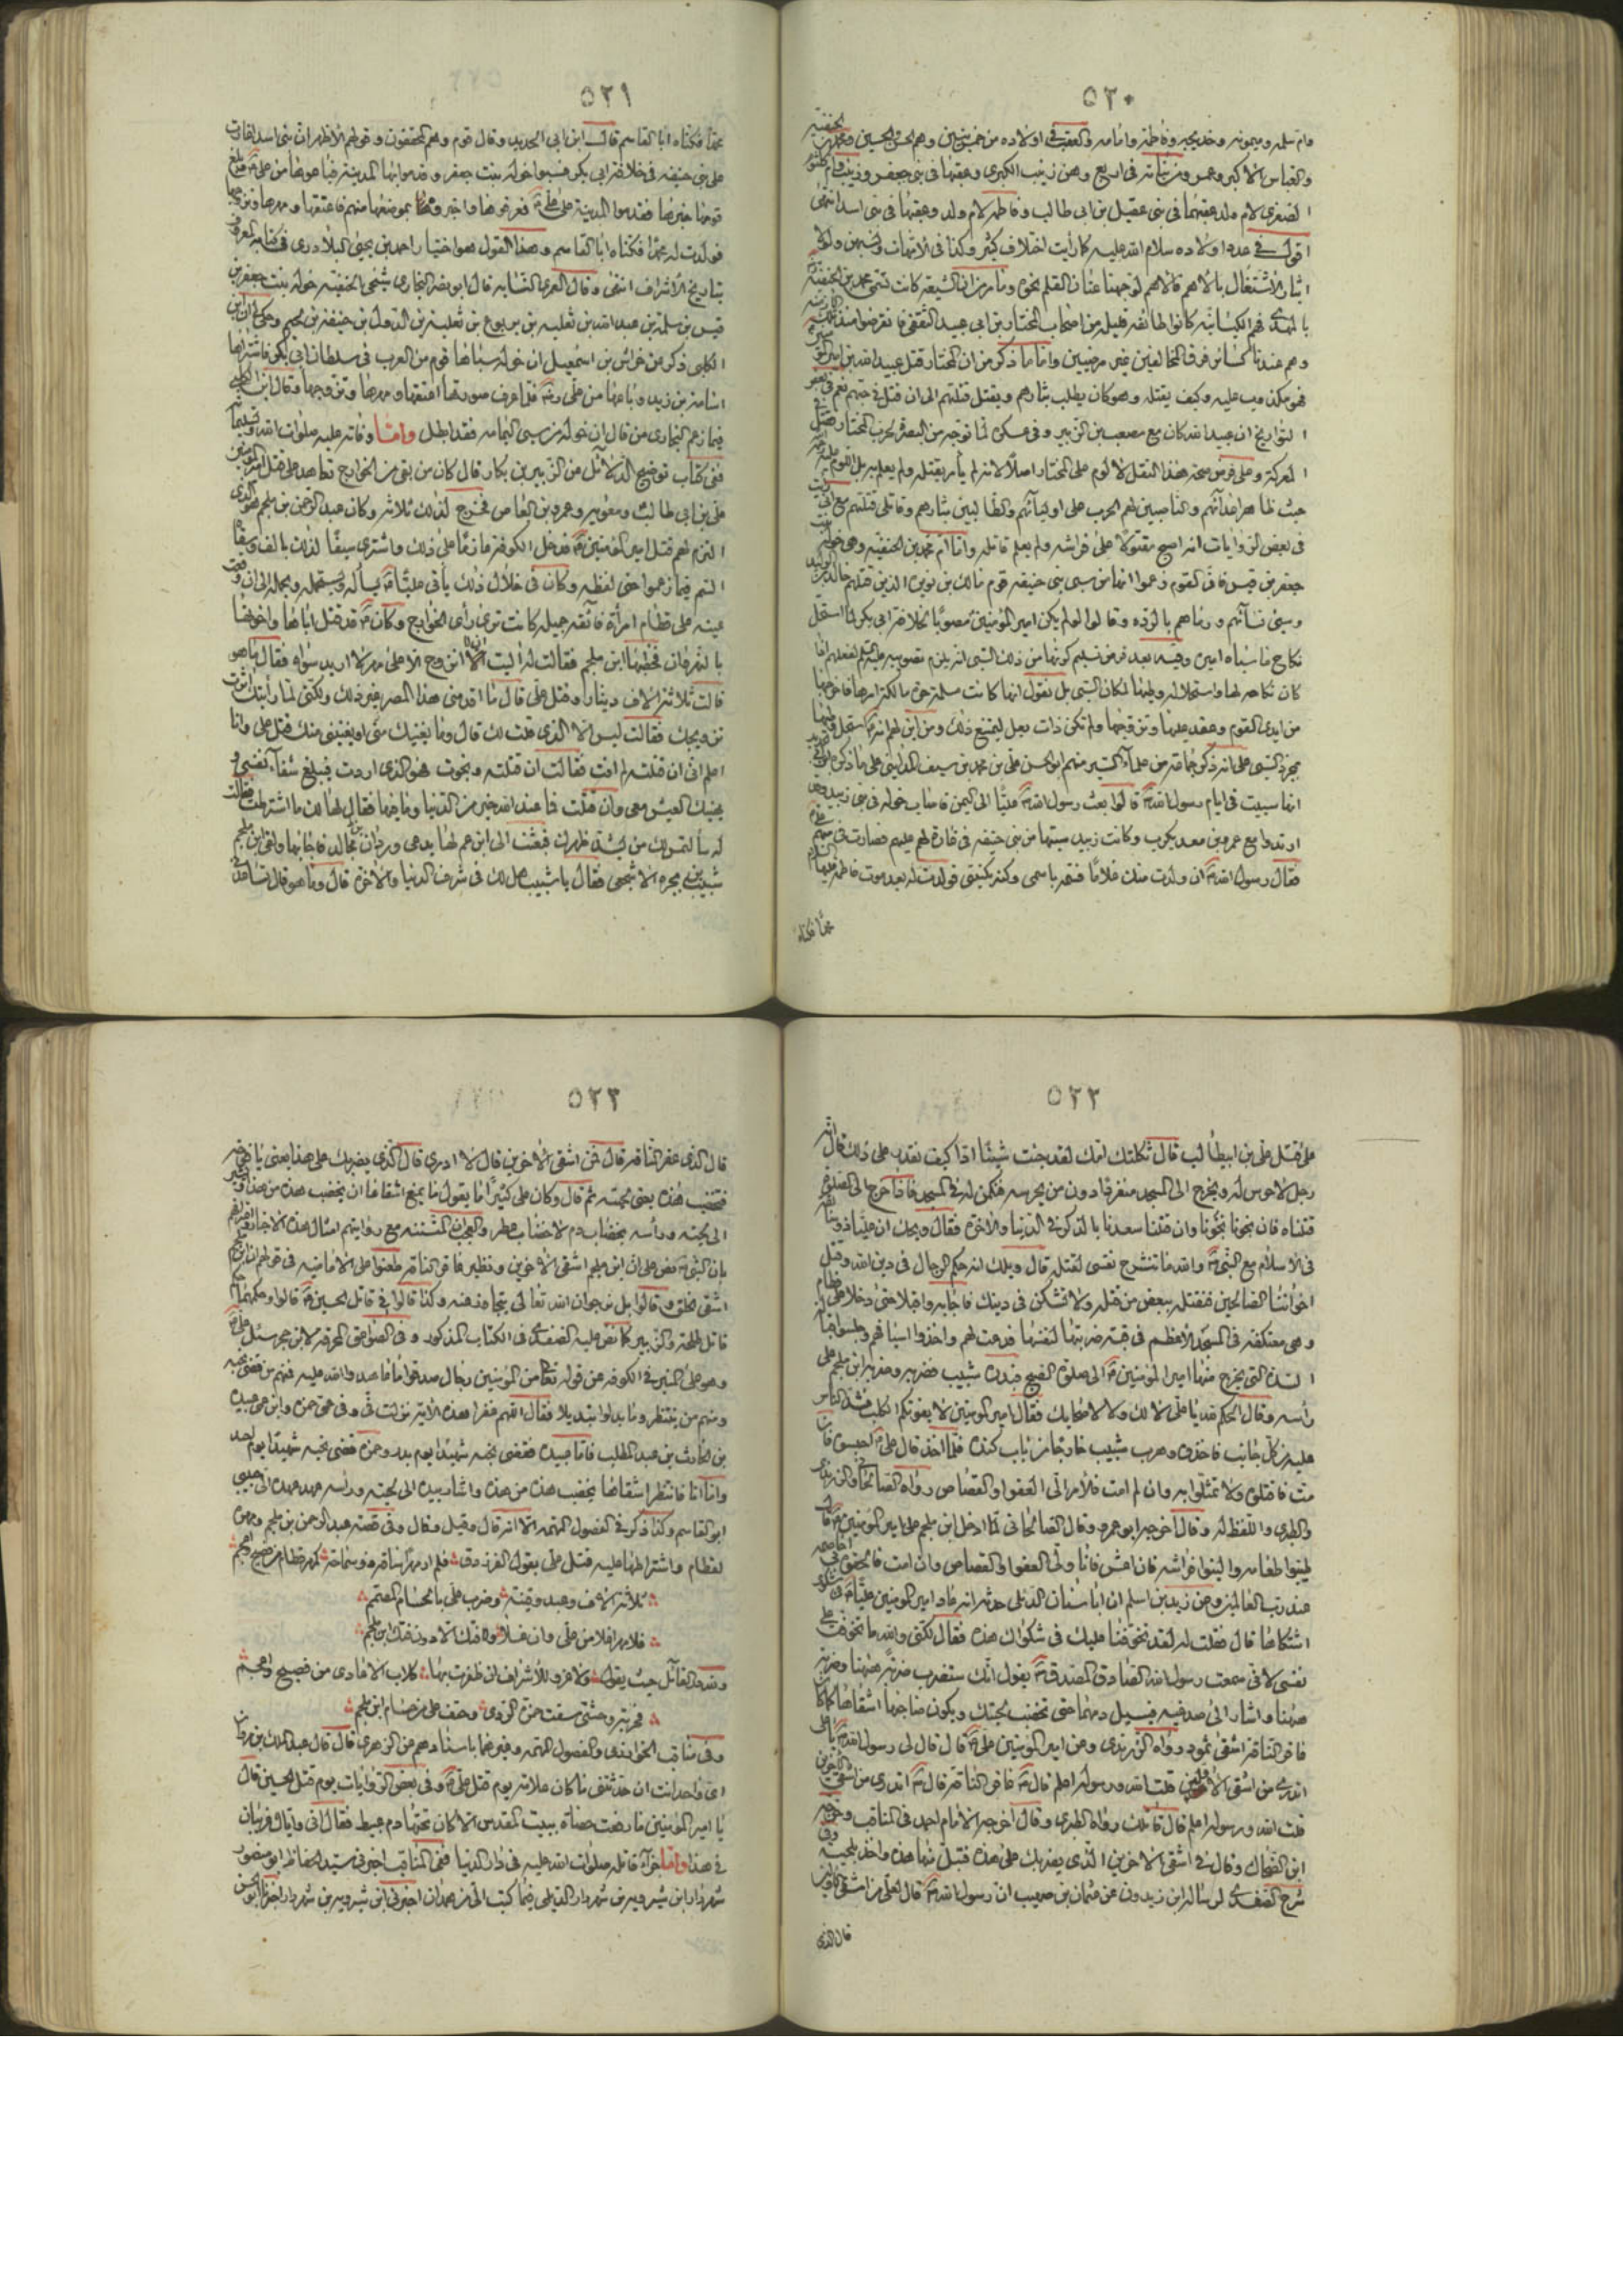 ٥٢٠
وام سلمه وميمونه وخديجه وفاطمه وامامه والعقب في اولاده من خمسة بنين وهم الحسن والحسين ومحمد بن الحنفيه
والعباس الاكبر وعمر ومن بناته في اربع وهن زينب الكبرى وعقبها في بنى جعفر وزينب وام كلثوم
الصغرى لام ولد عقبهما في بنى عقيل بن ابى طالب وفاطمه لام ولد وعقبها فى بنى اسد انتهى
اقول في عدد اولاده سلام الله عليه كما رأيت اختلاف كثير وكذا في الامهات
بالمهدى فهم الكيسانيه كانوا طائفه قليله من اصحاب المختار بن ابى عبيد الثقفى فانقرضوا
وهم عندنا كسائر فرق المخالفين غير مرضيين واما ما ذكر من ان المختار قتل عبيد الله بن
فهو مكذوب عليه وكيف يقتله وهو كان يطلب بثارهم ويقتل قتلتهم الى ان قتل في حبهم نعم في بعض
التواريخ ان عبيد الله كان مع مصعب بن الزبير وفي عسكره لما توجه من البصره لحرب المختار فقتل في
المعركة وعلى فرض صحة هذا النقل لا لوم على المختار اصلا لانه لم يأمر بقتله ولم يعلم به بل اللوم عليه
في بعض الروايات انه اصبح مقتولا على فراشه ولم يعلم قاتله واما ام محمد بن الحنفيه وهي خوله بنت
جعفر بن قيس فان القوم زعموا انها من سبى بنى حنيفه قوم مالك بن نويره الذين قتلهم خالد بن الوليد
وسبى نسائهم ورماهم بالرده وقالوا لو لم يكن امير المؤمنين مصوبا لخلافة ابى بكر لما استحل
نكاح ما سباه
كان نكاحه لها واستحلاله وطيها لمكان السبى بل نقول انها كانت مسلمة حرة مالكة امرها فاخرجها
من ايدى القوم وعقد عليها وتزوجها ولم تكن ذات بعل ليمتنع ذلك ومن اين لهم انه استحل وطيها
انها سبيت في ايام رسول الله قالوا بعث رسول الله عليا الى اليمن فاصاب خوله في بنى زبيد وقد
ارتدوا مع عمرو بن معد يكرب وكانت زبيد سبتها من بنى حنيفه في غارة لهم عليهم فصارت في سهمه
فقال رسول الله ان ولدت منك غلاما فسمه باسمى وكنه بكنيتى فولدت له بعد موت فاطمه عليها السلام
محمدا فكناه
٥٢١
محمدا فكناه ابا القاسم قال ابن ابى الحديد وقال قوم وهم المحققون وقولهم الاظهر ان بنى اسد اغارت
على بنى حنيفه فى خلافة ابى بكر فسبوا خوله بنت جعفر وقدموا بها المدينة فباعوها من على فبلغ
قومها خبرها فقدموا المدينة على على فعرفوها واخبروه بموضعها منهم فاعتقها ومهرها وتزوجها
فولدت له محمدا فكناه ابا القاسم وهذا القول هو اختيار احمد بن يحيى البلاذرى في كتابه المعروف
بتاريخ الاشراف انتهى وقال العمرى النسابه قال ابو نصر البخارى
قيس بن سلمة بن عبد الله بن ثعلبه بن يربوع بن ثعلبة بن الدول بن حنيفة بن لجيم وحكى ان ابن
الكلبى ذكر عن خراش بن اسمعيل ان خوله سباها قوم من العرب فى سلطان ابى بكر فاشتراها
اسامة بن زيد وباعها من على فلما عرف صورتها اعتقها ومهرها وتزوجها وقال ابن الكلبى
فيما زعم البخارى من قال ان خوله من سبى اليمامه فقد ابطل واما وفاته عليه صلوات الله وتسليما
ففى كتاب توضيح الدلائل عن الزبير بن بكار قال كان من بقى من الخوارج تعاهد على قتل امير المؤمنين
على بن ابى طالب ومعويه وعمرو بن العاص فخرج لذلك ثلاثه وكان عبد الرحمن بن ملجم هو الذى
التزم لهم قتل امير المؤمنين فدخل الكوفة عازما على ذلك واشترى سيفا لذلك بالف وسقاه
السم فيما زعموا حتى لفظه وكان في خلال ذلك يأتى عليا يسأله ويستحمله ويحمله الى ان وقعت
عينه على قطام امرأة فائقه جميله كانت ترى رأى الخوارج وكان قد قتل اباها واخوها
بالنهروان فخطبها ابن ملجم فقالت له اليت ان لا اتزوج الا على مهر لا اريد سواه فقال ما هو
قالت ثلاثة الاف دينار وقتل على قال ما اقدمنى هذا المصر غير ذلك ولكنى لما رأيتك اثرت
تزويجك فقالت ليس الا الذى قلت لك قال وما يغنيك منى او يغنينى منك قتل على وانا
اعلم انى ان قتلته لم افت فقالت ان قتلته ونجوت فهو الذى اردت فيبلغ شفاء نفسى و
يهنيك العيش معى وان قتلت فما عند الله خير من الدنيا وما فيها فقال لها لك ما اشترطت فقالت
له سألتمس لك من يشد ظهرك فبعثت الى ابن عم لها يدعى وردان بن مجالد فاجابها ولقى ابن ملجم
شبيب بن بجره الاشجعى فقال يا شبيب هل لك فى شرف الدنيا والاخره قال وما هو قال تساعدنى
٥٢٢
على قتل على بن ابيطالب قال ثكلتك امك لقد جئت شيئا ادا كيف نقدر على ذلك قال انه
رجل لا حرس له ويخرج الى المسجد منفردا دون من يحرسه فنكمن له في المسجد فاذا خرج الى الصلوة
قتلناه فان نجونا نجونا وان قتلنا سعدنا بالذكر في الدنيا والاخره فقال ويحك ان عليا ذو سابقة
فى الاسلام مع النبى والله ما تنشرح نفسى لقتله قال ويلك انه حكم الرجال فى دين الله وقتل
اخواننا الصالحين فنقتله ببعض من قتله ولا تشكن فى دينك فاجابه واقبلا حتى دخلا على قطام
وهى معتكفه فى المسجد الاعظم فى قبة ضربتها لنفسها فدعت لهم واخذوا اسيافهم وجلسوا قبالة
السدة التى يخرج منها امير المؤمنين الى صلوة الصبح فبدره شبيب فضربه وضربه ابن ملجم على
رأسه وقال الحكم لله يا على لا لك ولا لاصحابك فقال امير المؤمنين لا يفوتكم الكلب فشد الناس
عليه من كل جانب فاخذوه وهرب شبيب خارجا من باب كنده فلما اخذ قال على احبسوه فان
مت فاقتلوه ولا تمثلوا به وان لم امت فالامر الى العفو او القصاص
عند رب العالمين وعن زيد بن اسلم ان ابا سنان الدئلى حدثه انه عاد امير المؤمنين عليا في شكوى
اشتكاها قال فقلت له لقد تخوفنا عليك فى شكواك هذه فقال لكنى والله ما تخوفت على
نفسى لانى سمعت رسول الله الصادق المصدق يقول انك ستضرب ضربة ههنا وضربة
ههنا واشار الى صدغيه فيسيل دمها حتى تخضب لحيتك ويكون صاحبها اشقاها كما كان
عاقر الناقة اشقى ثمود رواه الزرندى وعن امير المؤمنين على قال قال لى رسول الله يا على
اتدرى من اشقى الاولين قلت الله ورسوله اعلم قال عاقر الناقة قال اتدرى من اشقى الاخرين
قلت الله ورسوله اعلم قال قاتلك رواه الطبرى وقال اخرجه الامام احمد فى المناقب وخرجه
ابن الضحاك وقال في اشقى الاخرين الذى يضربك على هذه فتبل منها هذه واخذ بلحيته وفى
شرح الصفدى لرسالة ابن زيدون عن عثمان بن صهيب ان رسول الله قال لعلى من اشقى الاولين
قال الذى
٥٢٣
قال الذى عقر الناقة قال فمن اشقى الاخرين قال لا ادرى قال الذى يضربك على هذا يعنى يافوخه
فتخضب هذه يعنى لحيته ثم قال وكان على كثيرا ما يقول ما يمنع اشقاها ان يخضب هذه من هذا
الى لحيته ورأسه بخضاب دم لا خضاب عطر
بان النبى نص على ان ابن ملجم اشقى الاخرين ونظير عاقر الناقة
قاتل طلحة والزبير كما نص عليه الصفدى فى الكتاب المذكور وفى الصواعق المحرقه لابن حجر سئل على
وهو على المنبر فى الكوفه عن قوله تعالى من المؤمنين رجال صدقوا ما عاهدوا الله عليه فمنهم من قضى نحبه
ومنهم من ينتظر وما بدلوا تبديلا فقال اللهم غفرا هذه الايه نزلت فى وفى عمى حمزه وابن عمى عبيده
بن الحارث بن عبد المطلب فاما عبيده فقضى نحبه شهيدا يوم بدر وحمزه قضى نحبه شهيدا يوم احد
واما انا فانتظر اشقاها يخضب هذه من هذه واشار بيده الى لحيته ورأسه عهد عهده الى حبيبى
ابو القاسم وكذا ذكر في الفصول المهمه
لقطام واشتراطها عليه قتل على يقول الفرزدق فلم ار مهرا ساقه ذو سماحة كمهر قطام من فصيح واعجم
ثلاثة الاف وعبد وقينة وضرب على بالحسام المصمم
فلا مهر اغلا من على وان غلا ولا فتك الا دون فتك ابن ملجم
ولله در القائل حيث يقول ولا غرو للاشراف ان ظفرت بها كلاب الاعادى من فصيح واعجم
فحربة وحشى سقت حمزة الردى وحتف على من حسام ابن ملجم
وفى مناقب الخوارزمى والفصول المهمه وغيرهما باسنادهم عن الزهرى قال قال عبد الملك بن مروان
اى واحد انت ان حدثتنى ما كان علامته يوم قتل على وفى بعض الروايات يوم قتل الحسين قال
يا امير المؤمنين ما رفعت حصاة ببيت المقدس الا كان تحتها دم عبيط فقال انى واياك غريبان
في هذا واما جزاء قاتله صلوات الله عليه فى دار الدنيا ففى المناقب اخبرنى سيد الحفاظ ابو منصور
شهردار بن شيرويه بن شهردار الديلمى فيما كتب الى من همدان